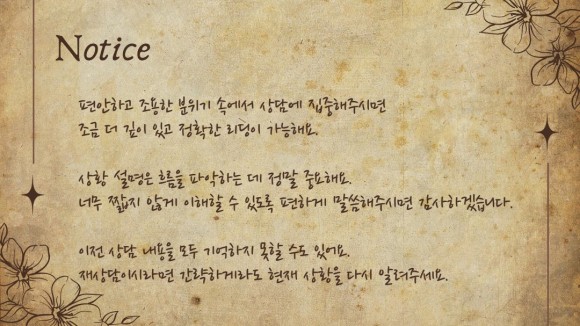 Notice
편안하고 조용한 분위기 속에서 상담에 집중해주시면
조금 더 깊이 있고 정확한 리딩이 가능해요.
상황 설명은 흐름을 파악하는 데 정말 중요해요.
너무 짧지 않게 이해할 수 있도록 편하게 말씀해주시면 감사하겠습니다.
이전 상담 내용을 모두 기억하지 못할 수도 있어요.
재상담이시라면 간략하게라도 현재 상황을 다시 알려주세요.